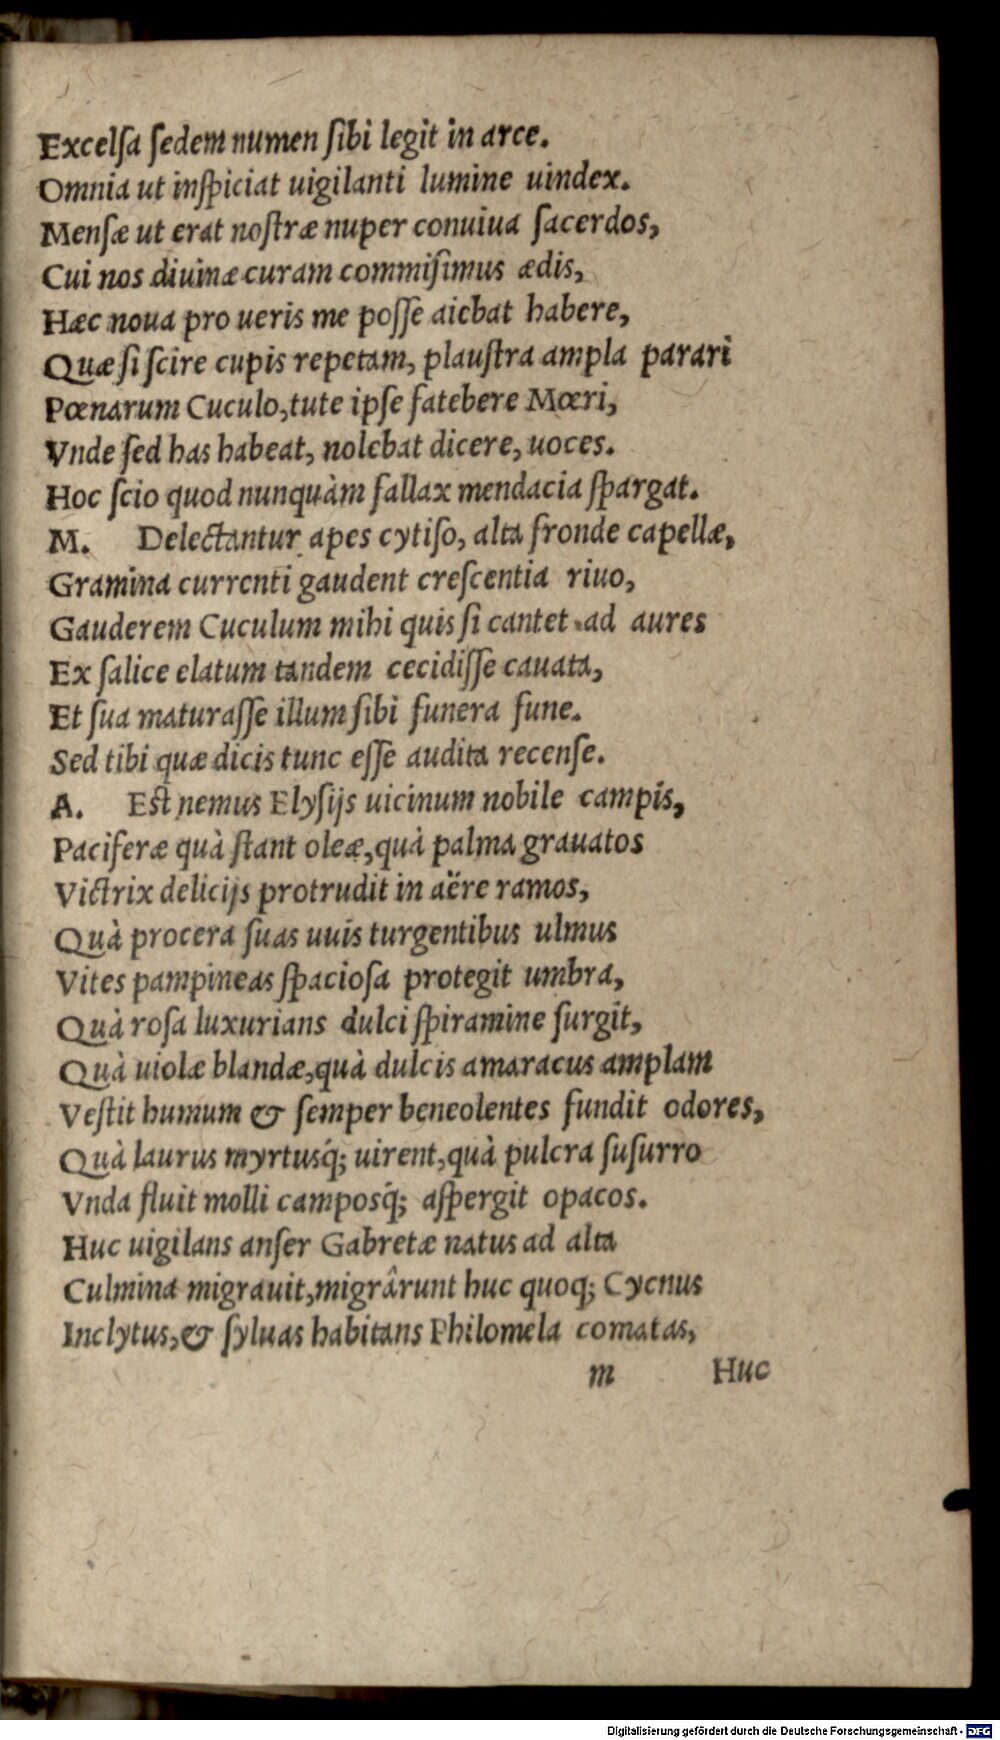 Excelſa ſedem numen ſibi legit in arce.
Omnia ut inſpiciat uigilanti lumine uindex.
Menſæ ut erat noſtræ nuper conuiua ſacerdos,
Cui nos diuinæ curam commiſimus ædis,
Hæc noua pro ueris me poſſe aiebat habere,
Quæ ſi ſcire cupis repetam, plauſtra ampla parari
Pœnarum Cuculo, tute ipſe fatebere Mœri,
Vnde ſed has habeat, nolebat dicere, uoces.
Hoc ſcio quod nunquàm fallax mendacia ſpargat.
M. Delectantur apes cytiſo, alta fronde capellæ,
Gramina currenti gaudent creſcentia riuo,
Gauderem Cuculum mihi quis ſi cantet ad aures
Ex ſalice elatum tandem cecidiſſe cauata,
Et ſua maturaſſe illum ſibi funera fune.
Sed tibi quæ dicis tunc eſſe audita recenſe.
A. Eſt nemus Elyſijs uicinum nobile campis,
Paciferæ quà ſtant oleæ, quà palma grauatos
Victrix delicijs protrudit in aëre ramos,
Quà procera ſuas uuis turgentibus ulmus
Vites pampineas ſpacioſa protegit umbra,
Quà roſa luxurians dulci ſpiramine ſurgit,
Quà uiolæ blandæ, quà dulcis amaracus amplam
Veſtit humum & ſemper beneolentes fundit odores,
Quà laurus myrtusq́; uirent, quà pulcra ſuſurro
Vnda fluit molli camposq́; aſpergit opacos.
Huc uigilans anſer Gabretæ natus ad alta
Culmina migrauit, migrârunt huc quoq; Cycnus
Inclytus, & ſyluas habitans Philomela comatas,
m Huc
Digitalisierung gefördert durch die Deutsche Forschungsgemeinschaft - DFG